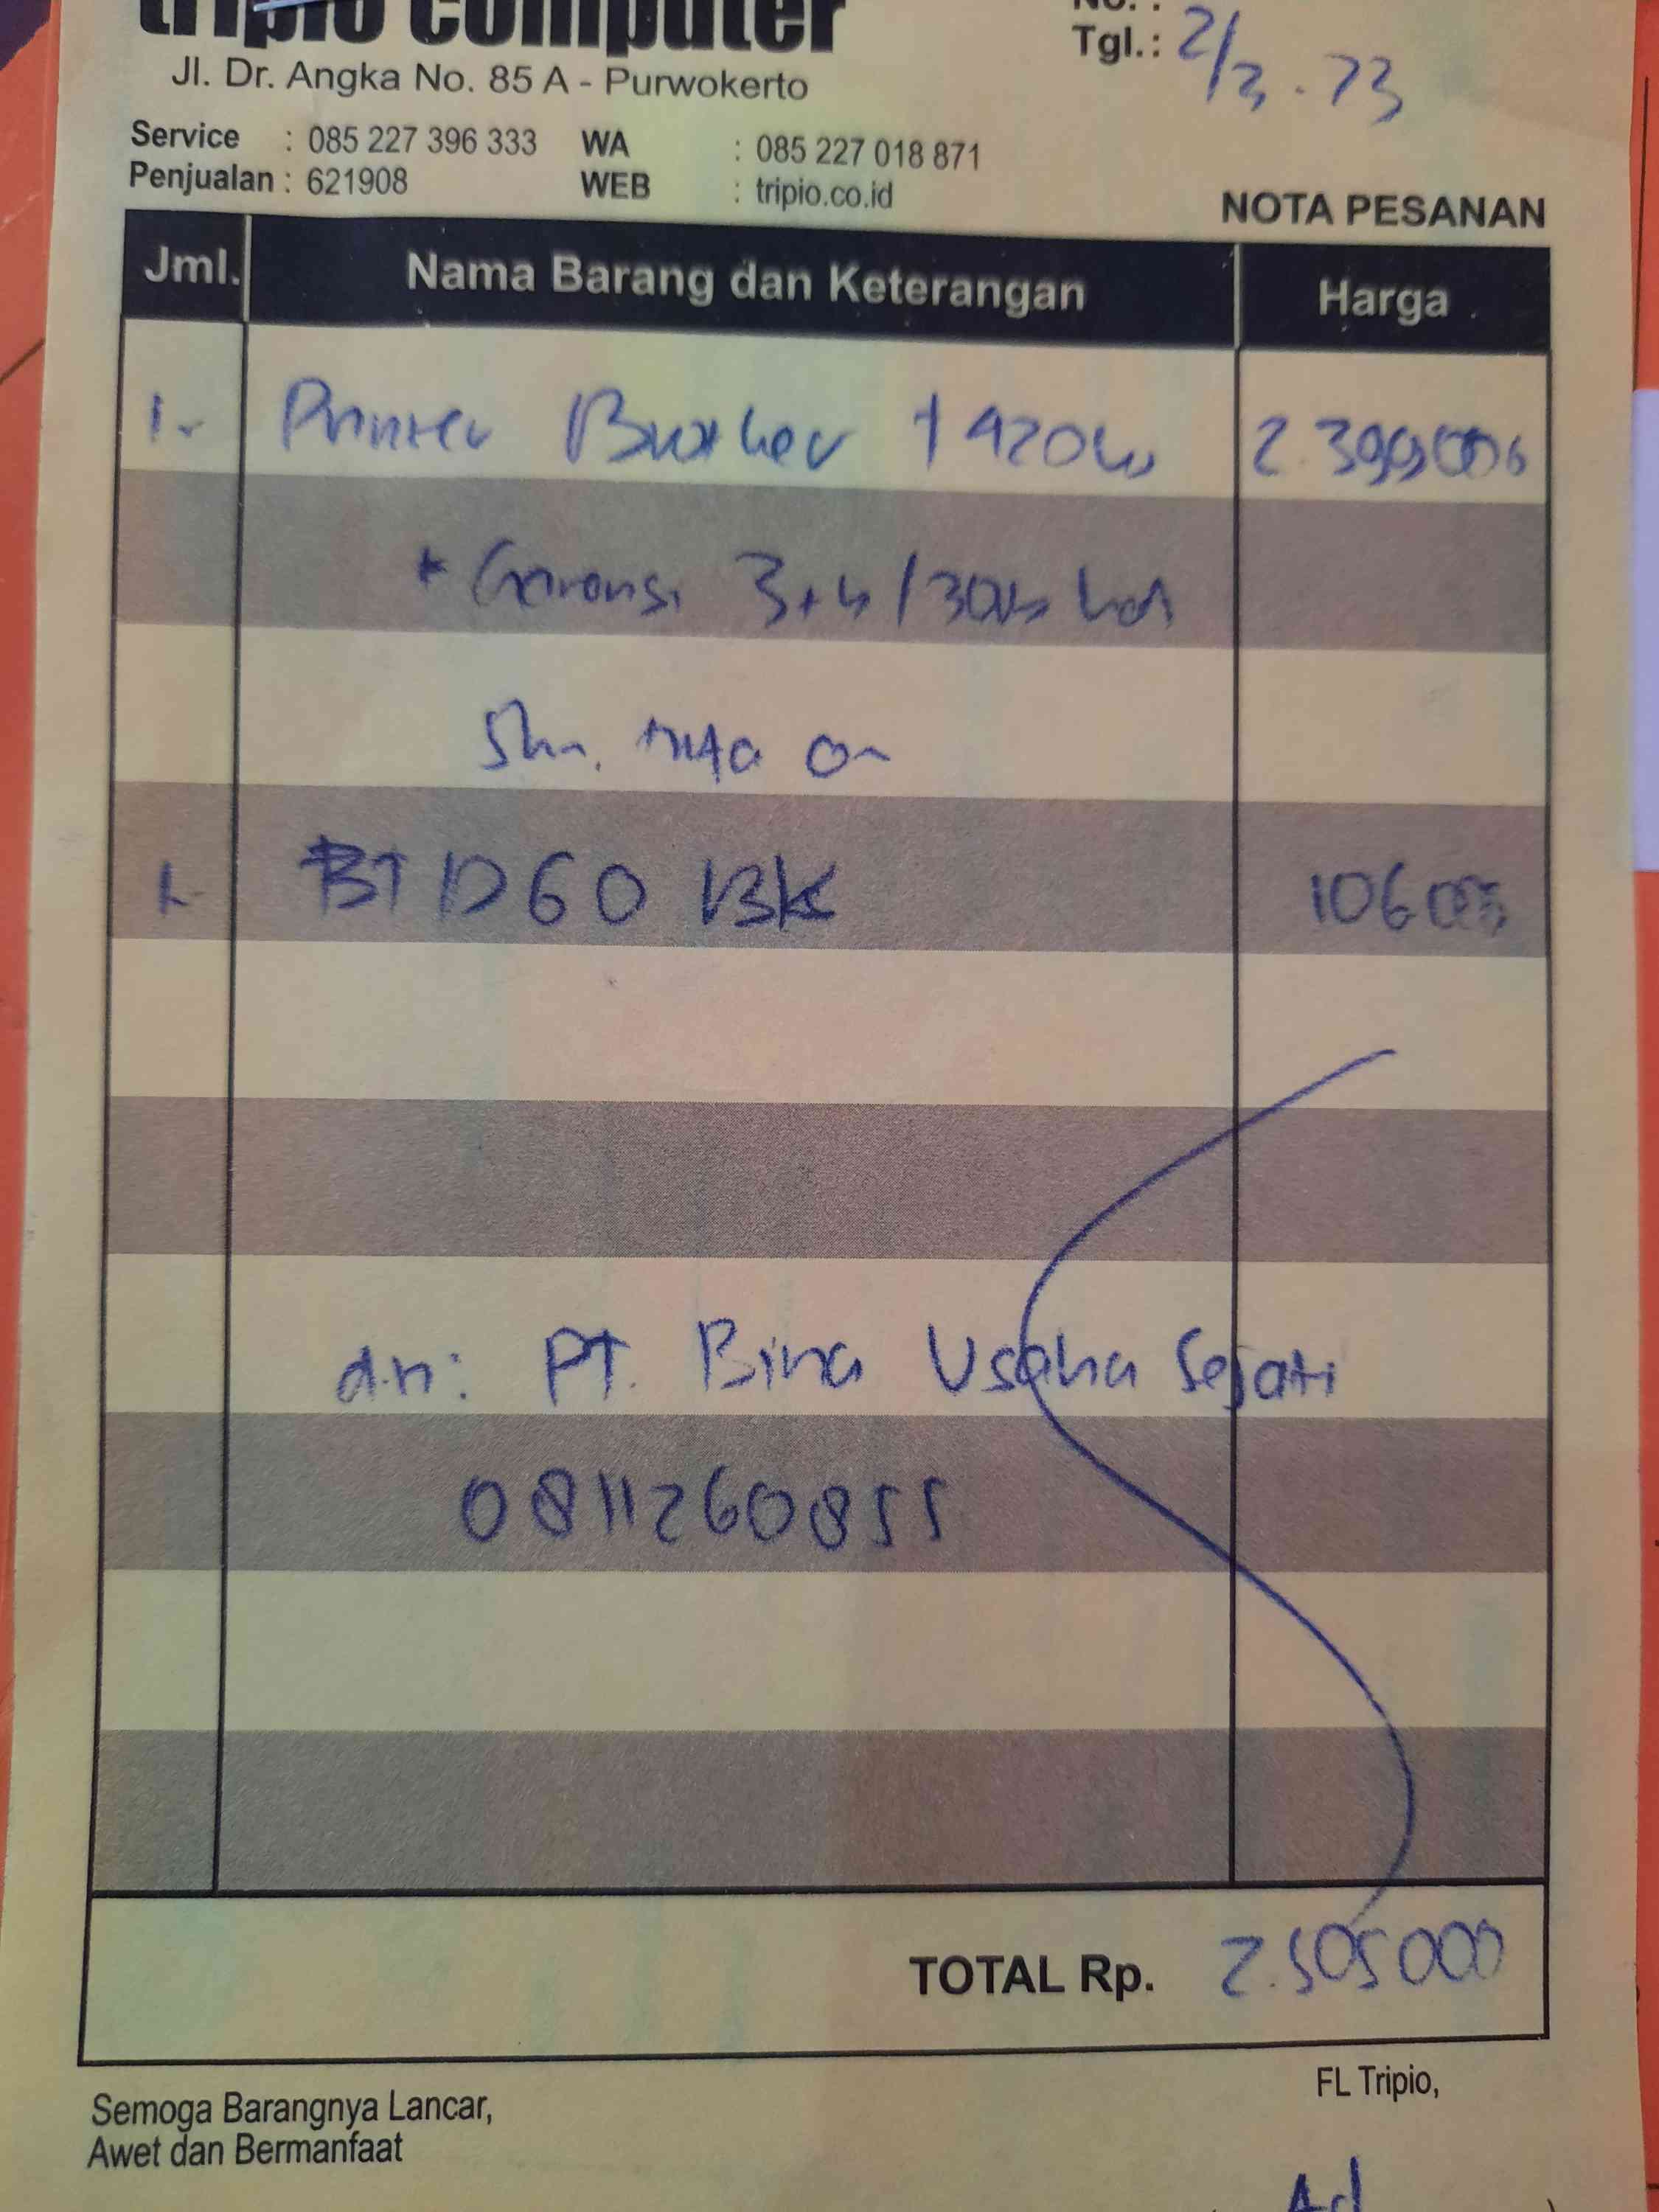 tripio computer
No. :
Tgl.: 2/3 . 23
Jl. Dr. Angka No. 85 A - Purwokerto
Service : 085 227 396 333 WA : 085 227 018 871
Penjualan : 621908 WEB : tripio.co.id
NOTA PESANAN
Jml. Nama Barang dan Keterangan Harga
1. Printer Brother T420W 2.399000
* Garansi 3th /
1. BTD60 BK 106000
a.n: PT. Bina Usaha Sejati
0811260855
TOTAL Rp. 2.505000
Semoga Barangnya Lancar,
Awet dan Bermanfaat
FL Tripio,
Ad